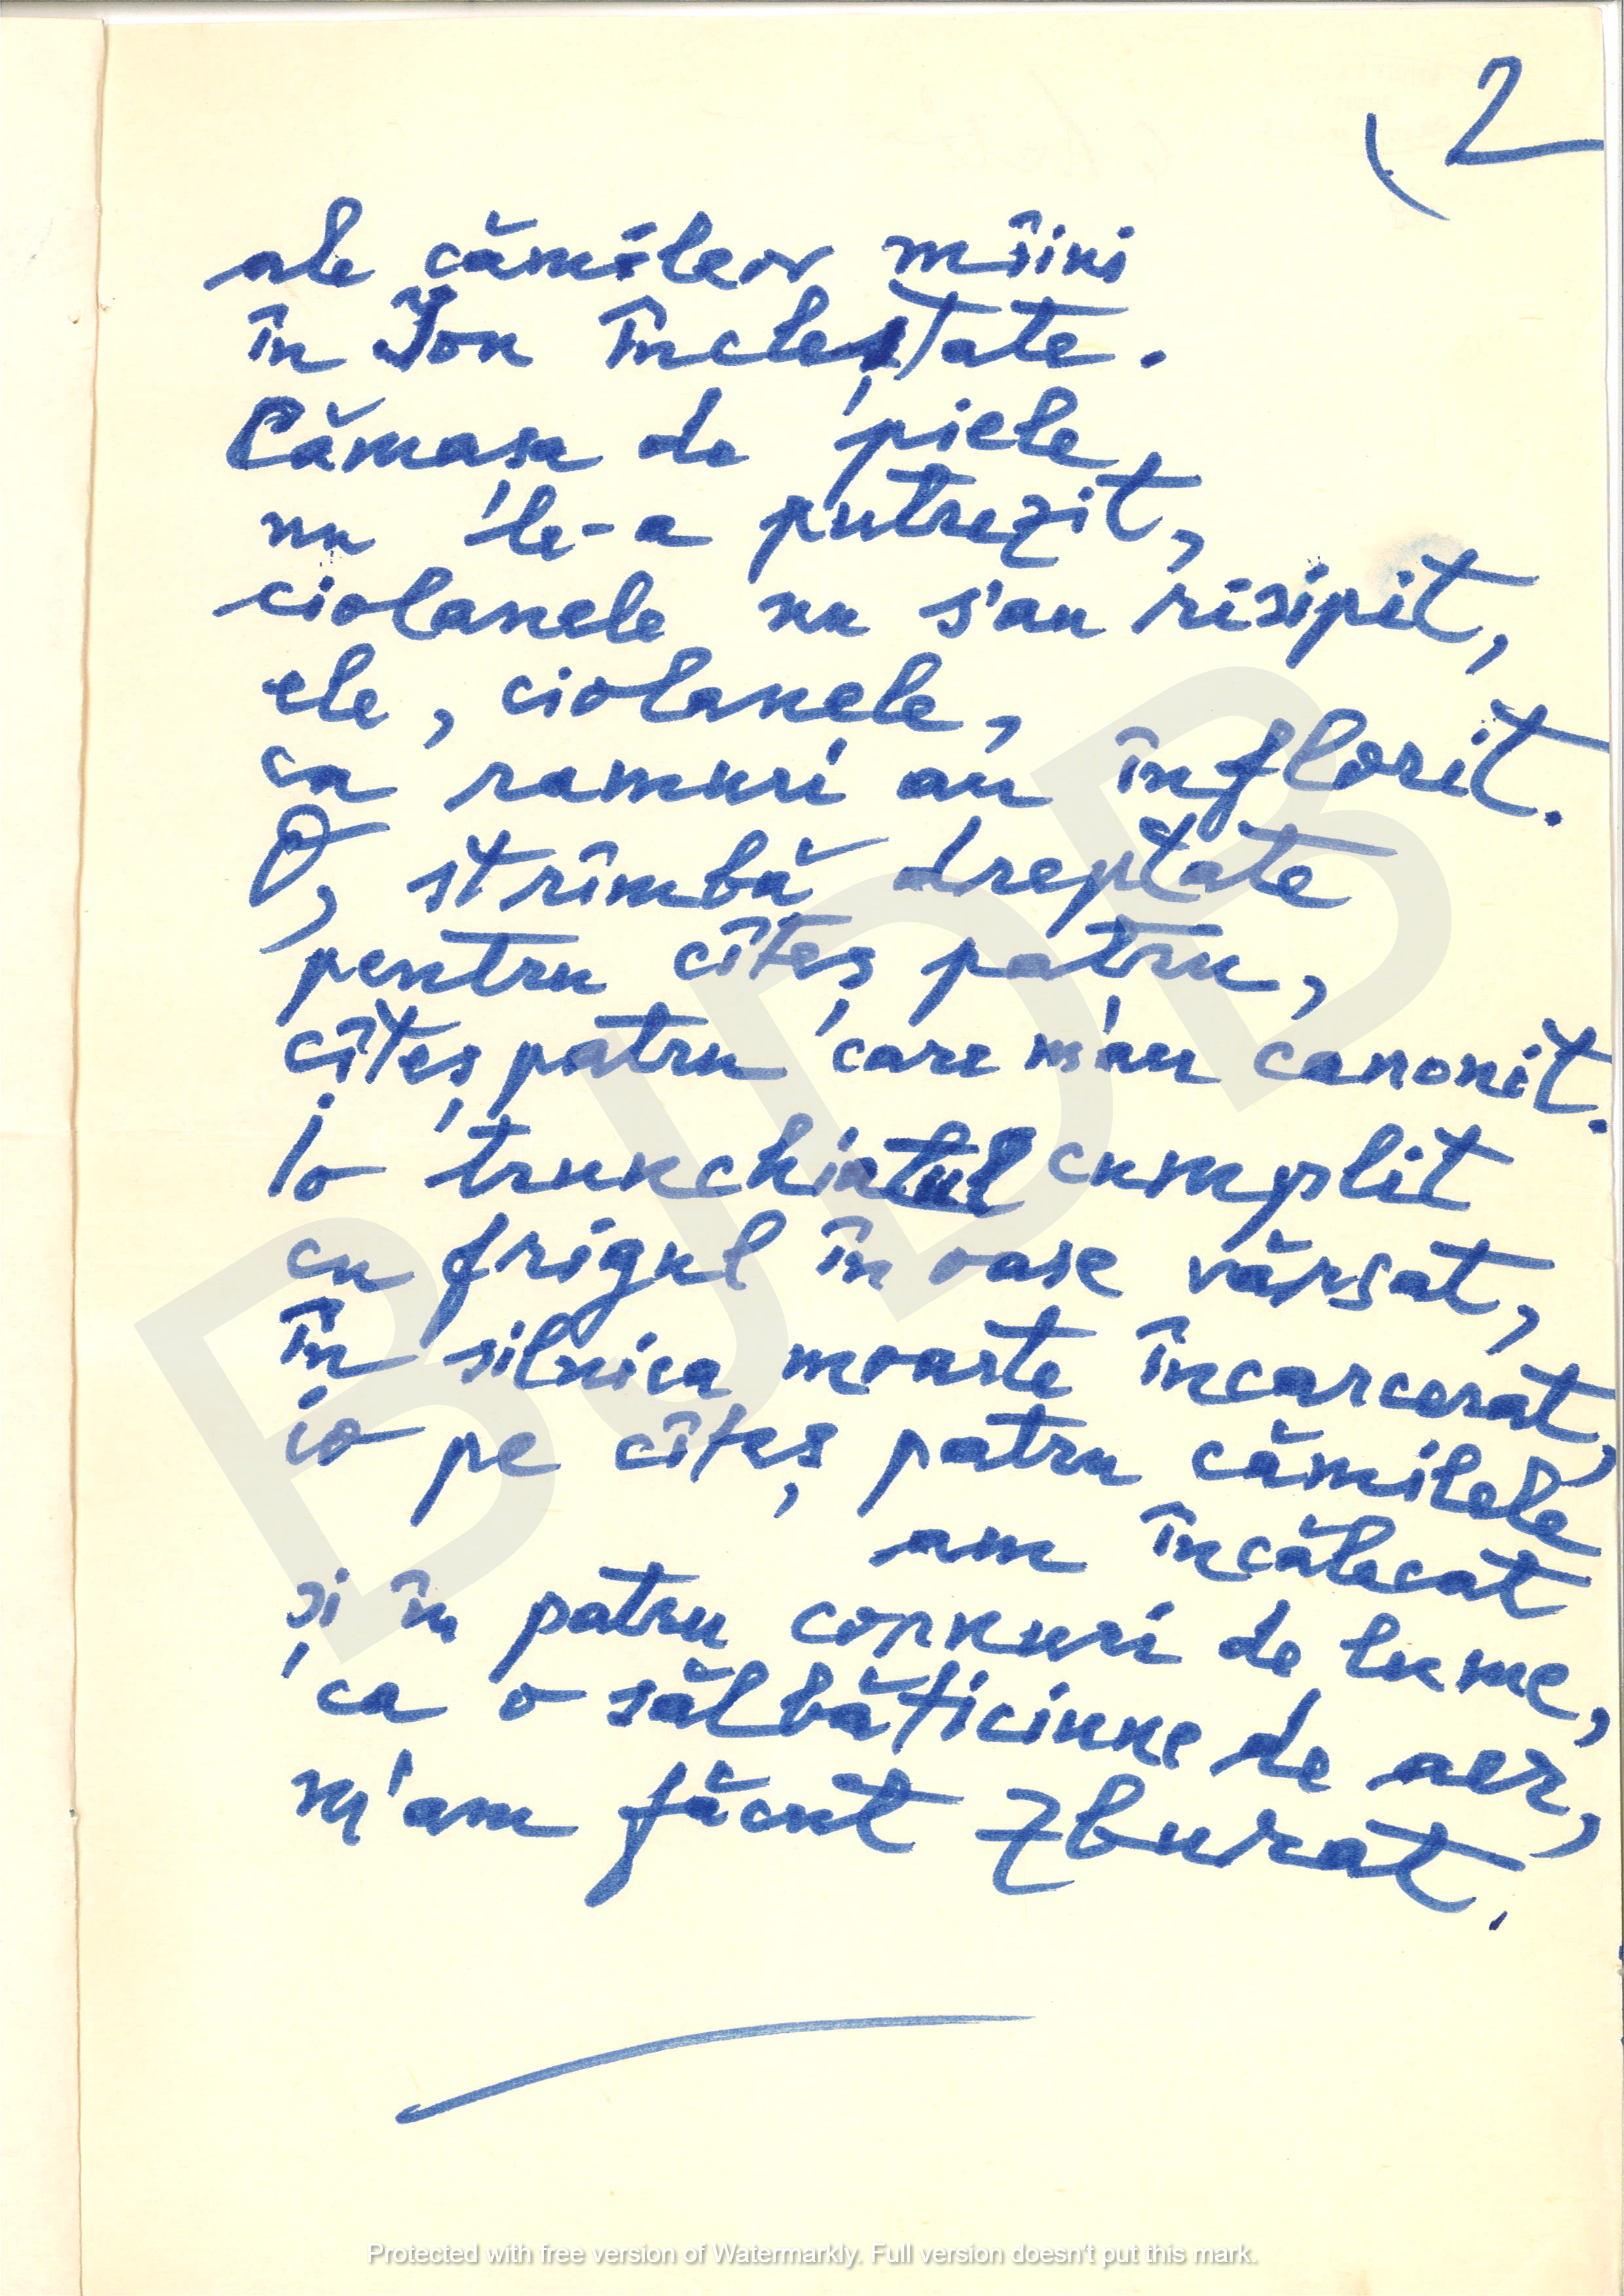 2
ale cămileor mîini
în Ion încleștate.
Cămașa de piele
nu le-a putrezit,
ciolanele nu s'au risipit,
ele, ciolanele,
ca ramuri au înflorit.
O, strîmbă dreptate
pentru cîteș patru,
cîteș patru care m'au canonit.
Io trunchiatul cumplit
cu frigul în oase vărsat,
în silnica moarte încarcerat,
io pe cîteș patru cămilele
am încălecat
și în patru copnuri de lume,
ca o sălbăticiune de aer,
m'am făcut zburat.
BJDB
Protected with free version of Watermarkly. Full version doesn't put this mark.